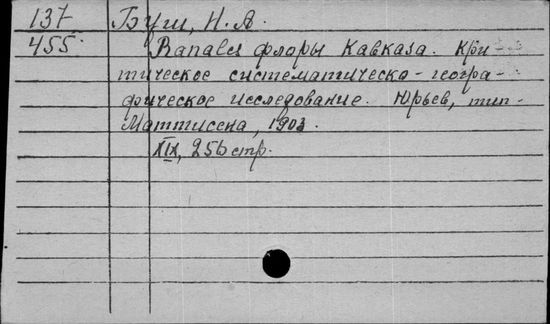 137 Буш, Н. А.
455 Ranales флоры Кавказа. Кри-
тическое систематическо-геогра-
фическое исследование. Юрьев, тип.
Маттисена, 1903.
XIX, 256 стр.